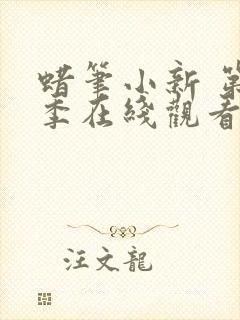 蜡筆小新 第
季在綫觀看
汪文龍